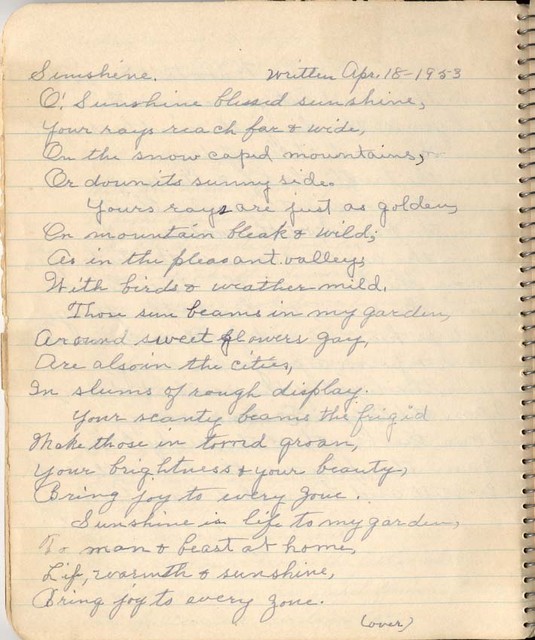 Sunshine. Written Apr. 18-1953
O! Sunshine blessed sunshine,
Your rays reach far & wide,
On the snow capid mountains,
Or down its sunny side.
Yours rays are just as golden,
On mountain bleak & wild;
As in the pleasant valleys,
With birds & weather mild.
Those sun beams in my garden,
Around sweet flowers gay,
Are alsoin the cities,
In slums of rough display.
Your scanty beams the frigid
Make those in torrid groan,
Your brightness & your beauty,
Bring joy to every zone.
Sunshine is life to my garden,
To man & beast at home,
Lif, warmth & sunshine,
Bring joy to every zone.
(over)